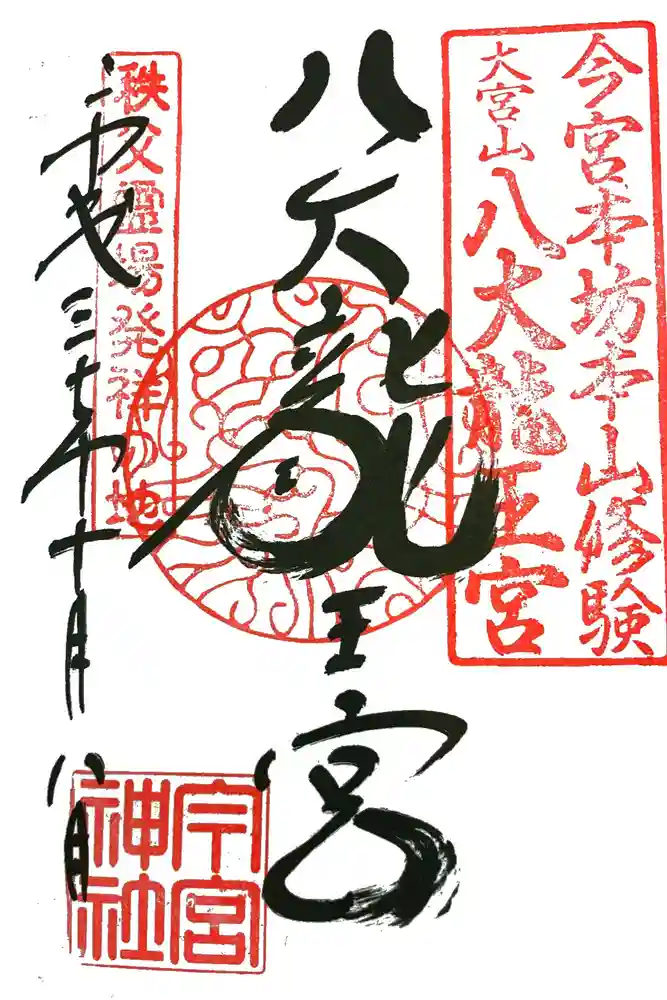 今宮本坊本山修験
大宮山八大龍王宮
八大龍王宮
秩父霊場発祥の地
平成三十年十月八日
今宮神社